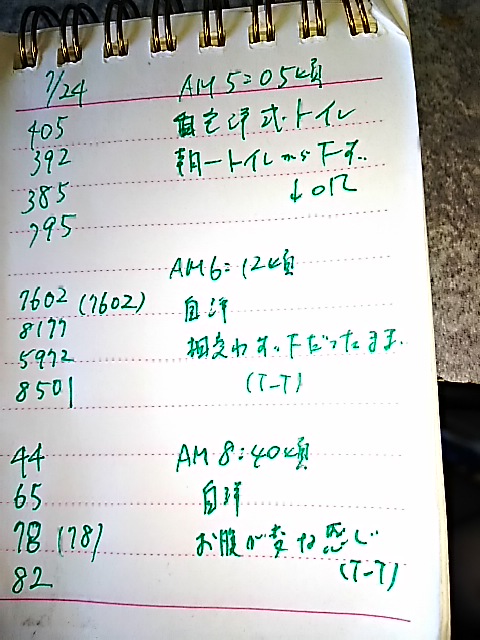 7/24 AM5:05頃
405 自宅洋式トイレ
392 朝一トイレから下す..
385 ↓or
795
AM6:12頃
7602 (7602) 自洋
8177
5972 相変わす.下だったまま.
8501 (T-T)
44 AM8:40頃
65 自洋
78 (78) お腹が変な感じ
82 (T-T)